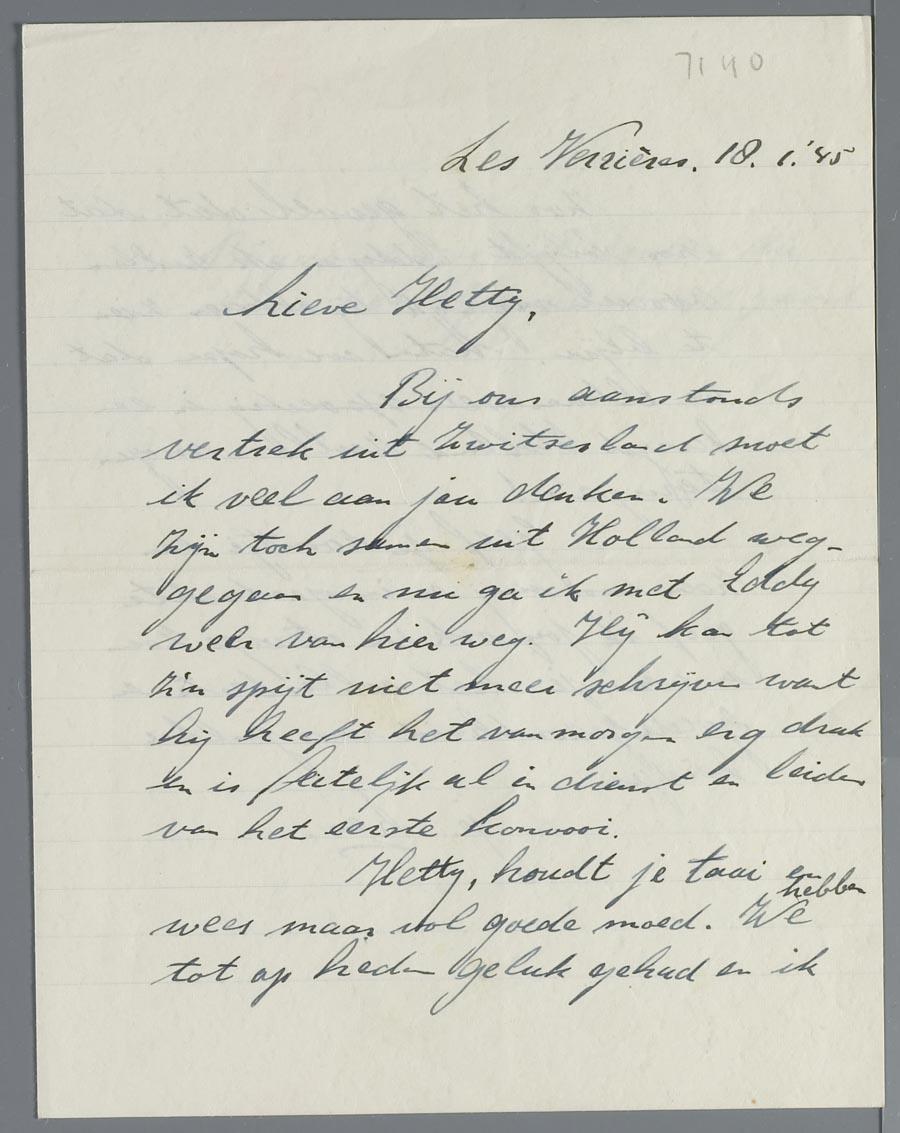 7140
Les Verrières. 18. 1. '45
Lieve Hetty,
Bij ons aanstonds
vertrek uit Zwitserland moet
ik veel aan jou denken. We
zijn toch samen uit Holland weg-
gegaan en nu ga ik met Eddy
weer van hier weg. Hij kan tot
z'n spijt niet meer schrijven want
hij heeft het vanmorgen erg druk
en is feitelijk al in dienst en leider
van het eerste konvooi.
Hetty, houdt je taai en
wees maar vol goede moed. We hebben
tot op heden geluk gehad en ik